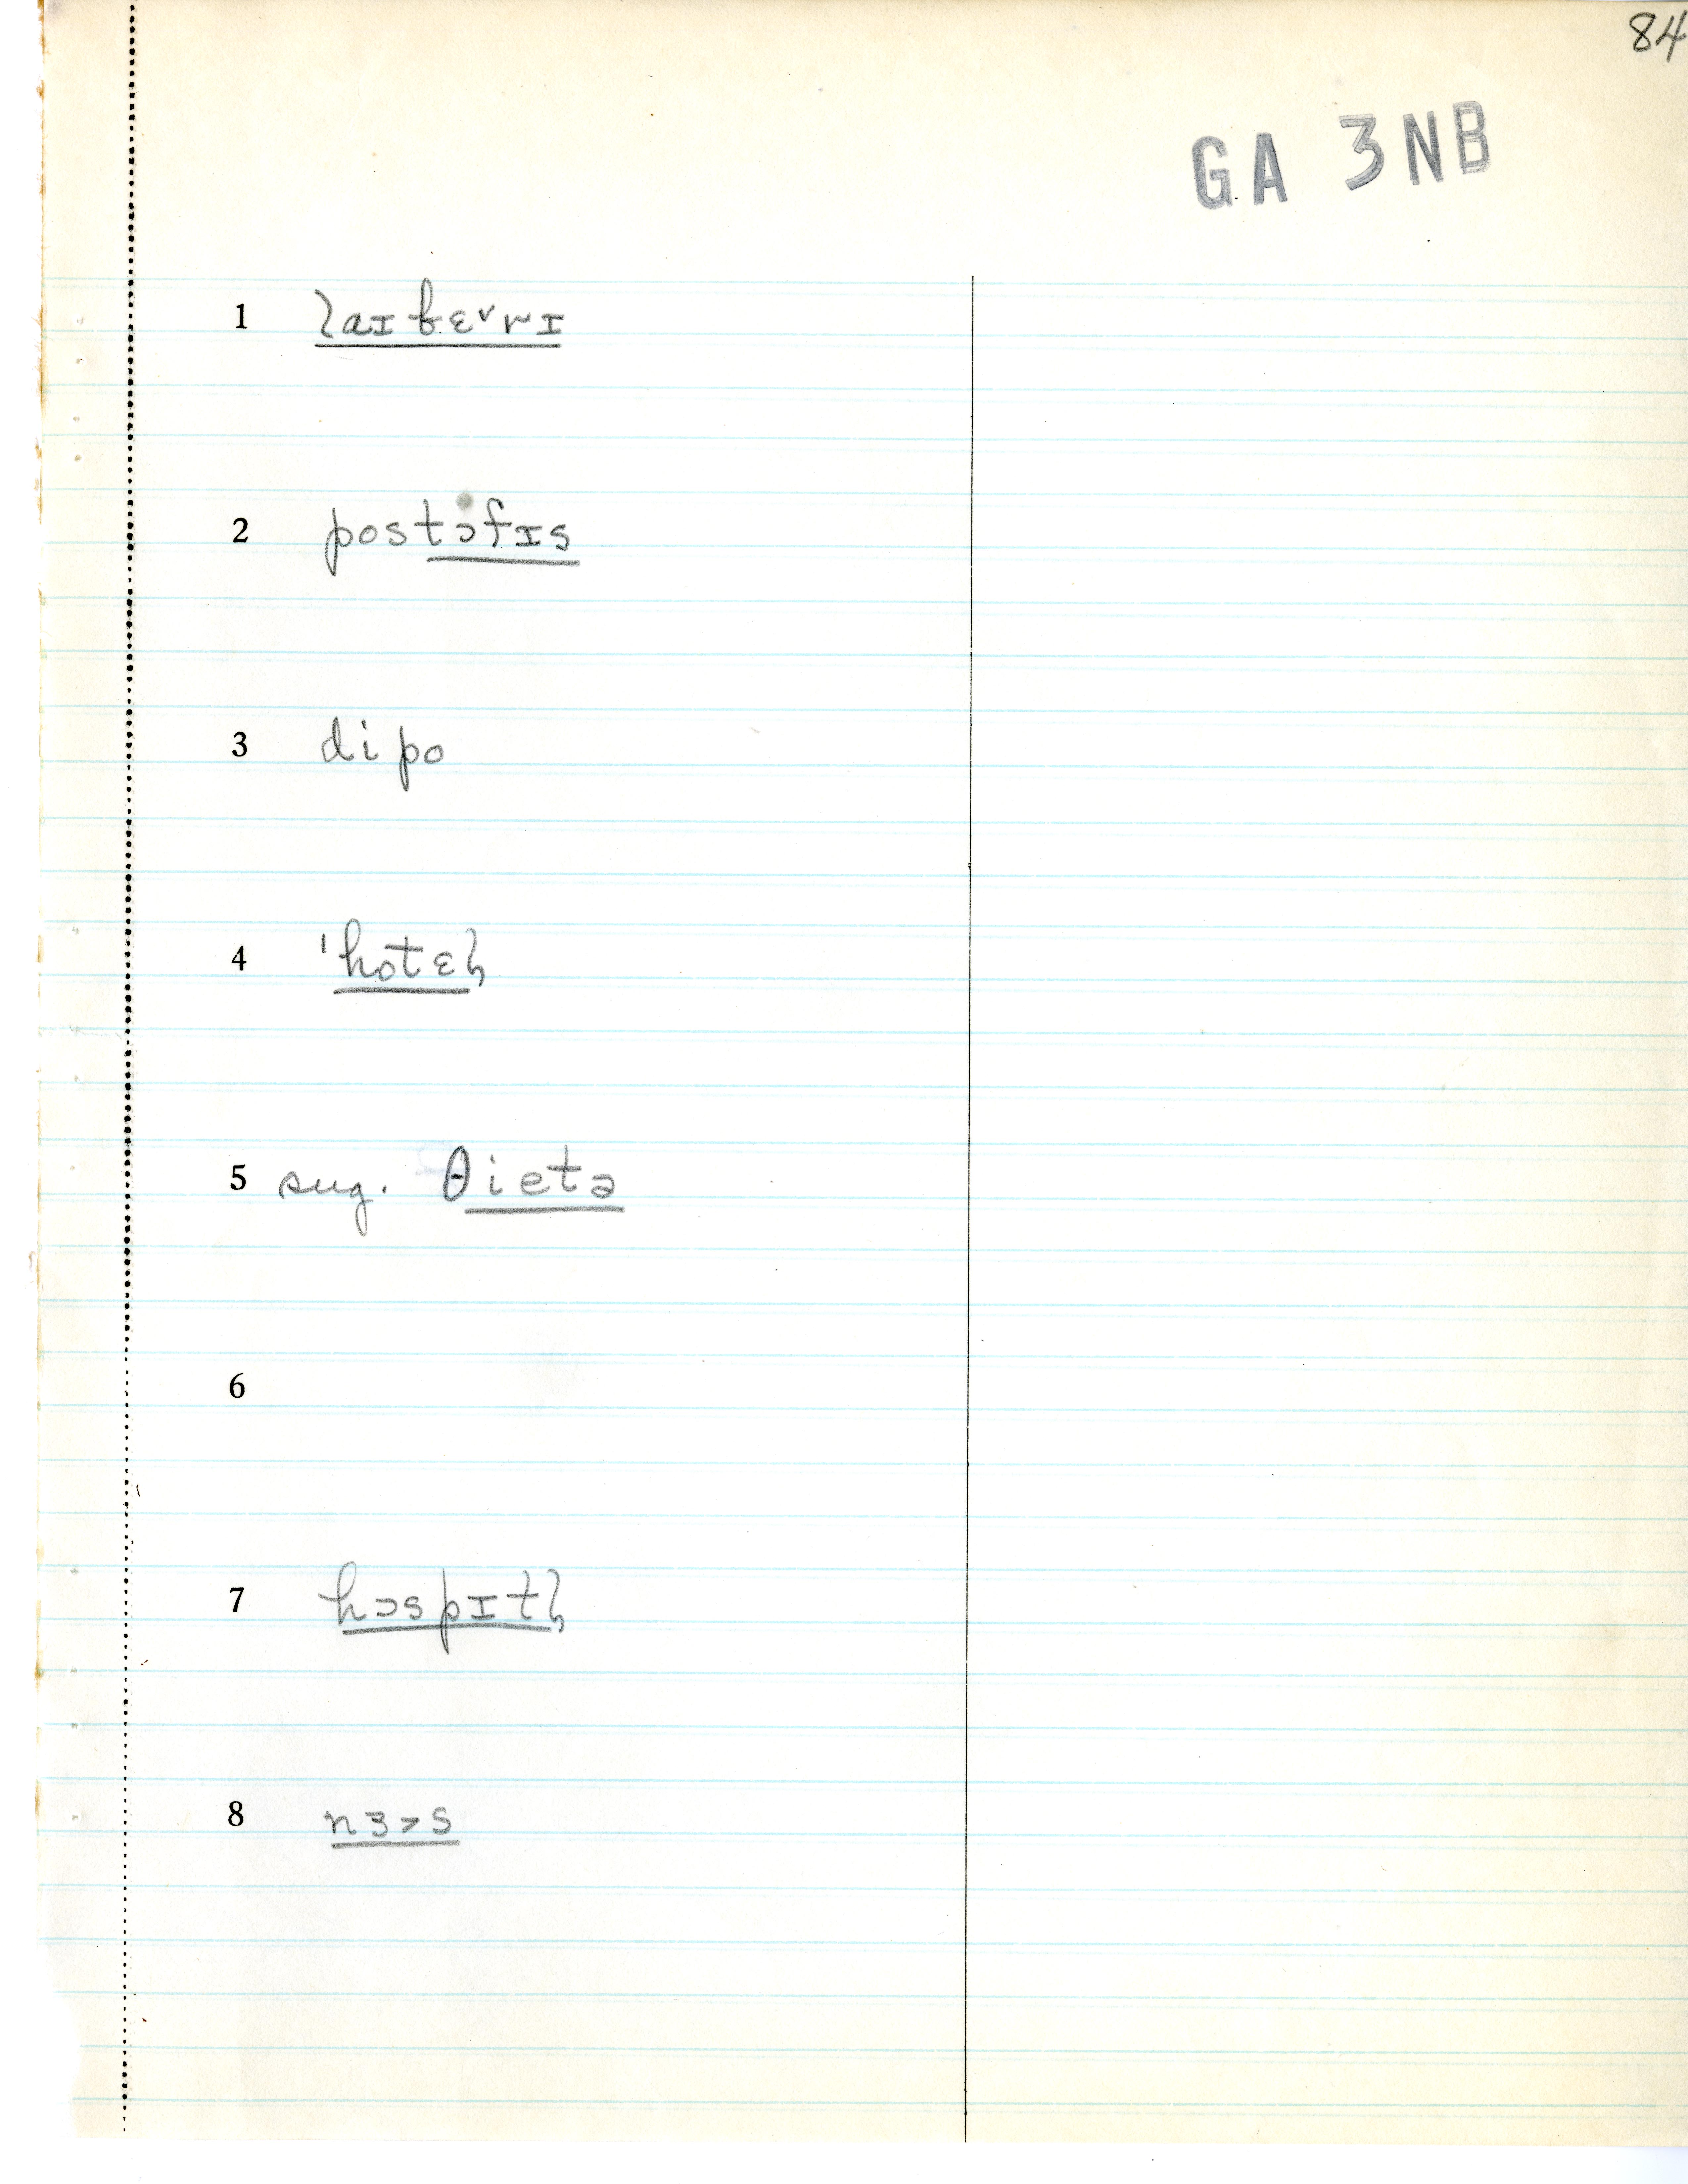 84
GA 3NB
1 laɪbɛ˅rɪ
2 postɔfɪs
3 dipo
4 'hotɛl̡
5 sug. θietə
6
7 hɔspɪtl̡
8 nɜ>s